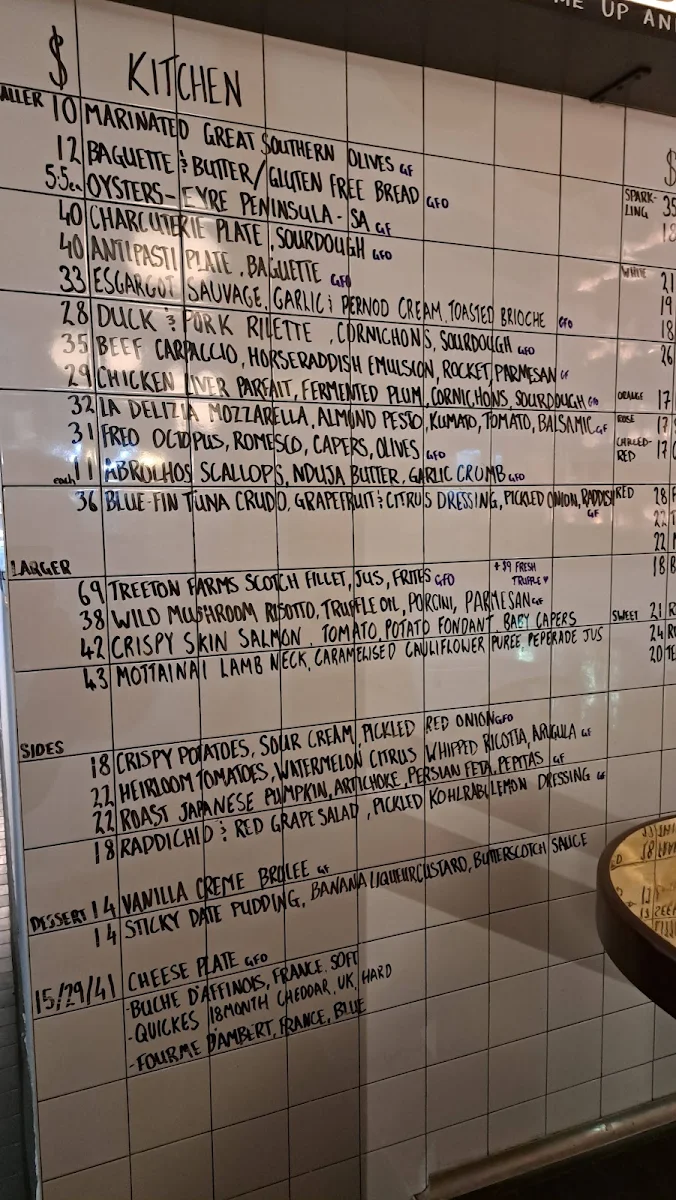 ME UP AN
$ KITCHEN
ALLER 10 MARINATED GREAT SOUTHERN OLIVES GF
12 BAGUETTE & BUTTER/GLUTEN FREE BREAD GFO
5.5ea OYSTERS - EYRE PENINSULA - SA GF
40 CHARCUTERIE PLATE, SOURDOUGH GFO
40 ANTIPASTI PLATE, BAGUETTE GFO
33 ESCARGOT SAUVAGE, GARLIC & PERNOD CREAM, TOASTED BRIOCHE GFO
28 DUCK & PORK RILETTE, CORNICHONS, SOURDOUGH GFO
35 BEEF CARPACCIO, HORSERADDISH EMULSION, ROCKET, PARMESAN GF
29 CHICKEN LIVER PARFAIT, FERMENTED PLUM, CORNICHONS, SOURDOUGH GFO
32 LA DELIZIA MOZZARELLA, ALMOND PESTO, KUMATO, TOMATO, BALSAMIC GF
31 FREO OCTOPUS, ROMESCO, CAPERS, OLIVES GFO
each 11 ABROLHOS SCALLOPS, NDUJA BUTTER, GARLIC CRUMB GFO
36 BLUE-FIN TUNA CRUDO, GRAPEFRUIT & CITRUS DRESSING, PICKLED ONION, RADDISH
GF
LARGER
69 TREETON FARMS SCOTCH FILLET, JUS, FRITES GFO
+$9 FRESH
TRUFFLE ♥
38 WILD MUSHROOM RISOTTO, TRUFFLE OIL, PORCINI, PARMESAN GF
42 CRISPY SKIN SALMON, TOMATO, POTATO FONDANT BABY CAPERS
43 MOTTAINAI LAMB NECK, CARAMELISED CAULIFLOWER PUREE, PEPERADE JUS
SIDES
18 CRISPY POTATOES, SOUR CREAM, PICKLED RED ONION GFO
22 HEIRLOOM TOMATOES, WATERMELON CITRUS WHIPPED RICOTTA, ARUGULA GF
22 ROAST JAPANESE PUMPKIN, ARTICHOKE, PERSIAN FETA, PEPITAS GF
18 RADDICHIO & RED GRAPE SALAD, PICKLED KOHLRABI, LEMON DRESSING GF
DESSERT 14 VANILLA CREME BRULEE GF
14 STICKY DATE PUDDING, BANANA LIQUEUR CUSTARD, BUTTERSCOTCH SAUCE
15/29/41 CHEESE PLATE GFO
-BUCHE D'AFFINOIS, FRANCE, SOFT
-QUICKES 18MONTH CHEDDAR, UK, HARD
-FOURME D'AMBERT, FRANCE, BLUE
$
SPARK-
LING 35
18
WHITE 21
19
18
26
ORANGE 17
ROSE 17
CHILLED-
RED 17
RED 28
22
22
18
SWEET 21
24
20